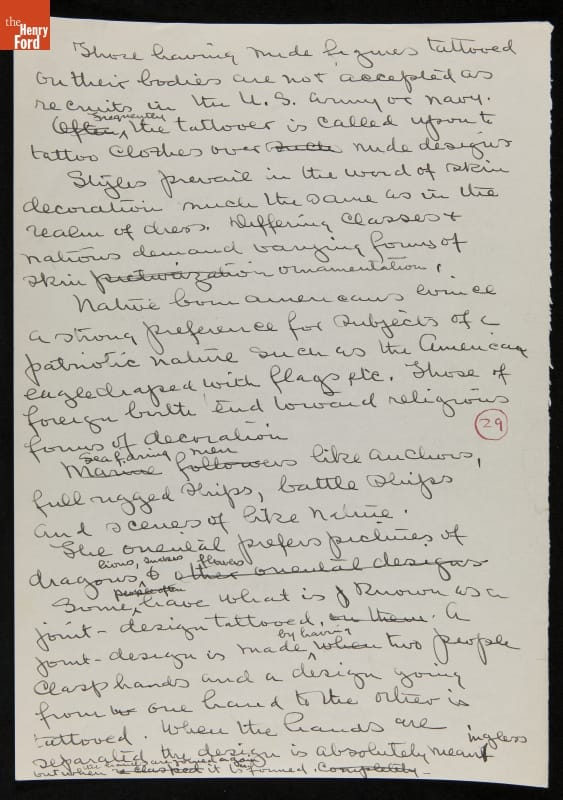 the
Henry
Ford
Those having nude figures tattooed
on their bodies are not accepted as
recruits in the U.S. army or navy.
Often frequently the tattooer is called upon to
tattoo clothes over such nude designs
Styles prevail in the word of skin
decoration much the same as in the
realm of dress. Differing classes &
nations demand varying forms of
skin picturization ornamentation.
Native born americans evince
a strong preference for subjects of a
patriotic nature such as the American
eagle draped with flags etc. Those of
foreign birth tend toward religious
29
forms of decoration
Marine Seafaring followers men like anchors,
full rigged ships, battle ships
and scenes of like nature.
The oriental prefers pictures of
dragons lions, snakes & flowers other oriental designs
Some people often have what is known as a
joint-design tattooed, on them. A
joint-design is made by having when two people
clasp hands and a design going
from one hand to the other is
tattooed. When the hands are
separated the design is absolutely meaningless
but when the hands are joined again reclasped it is formed. completely